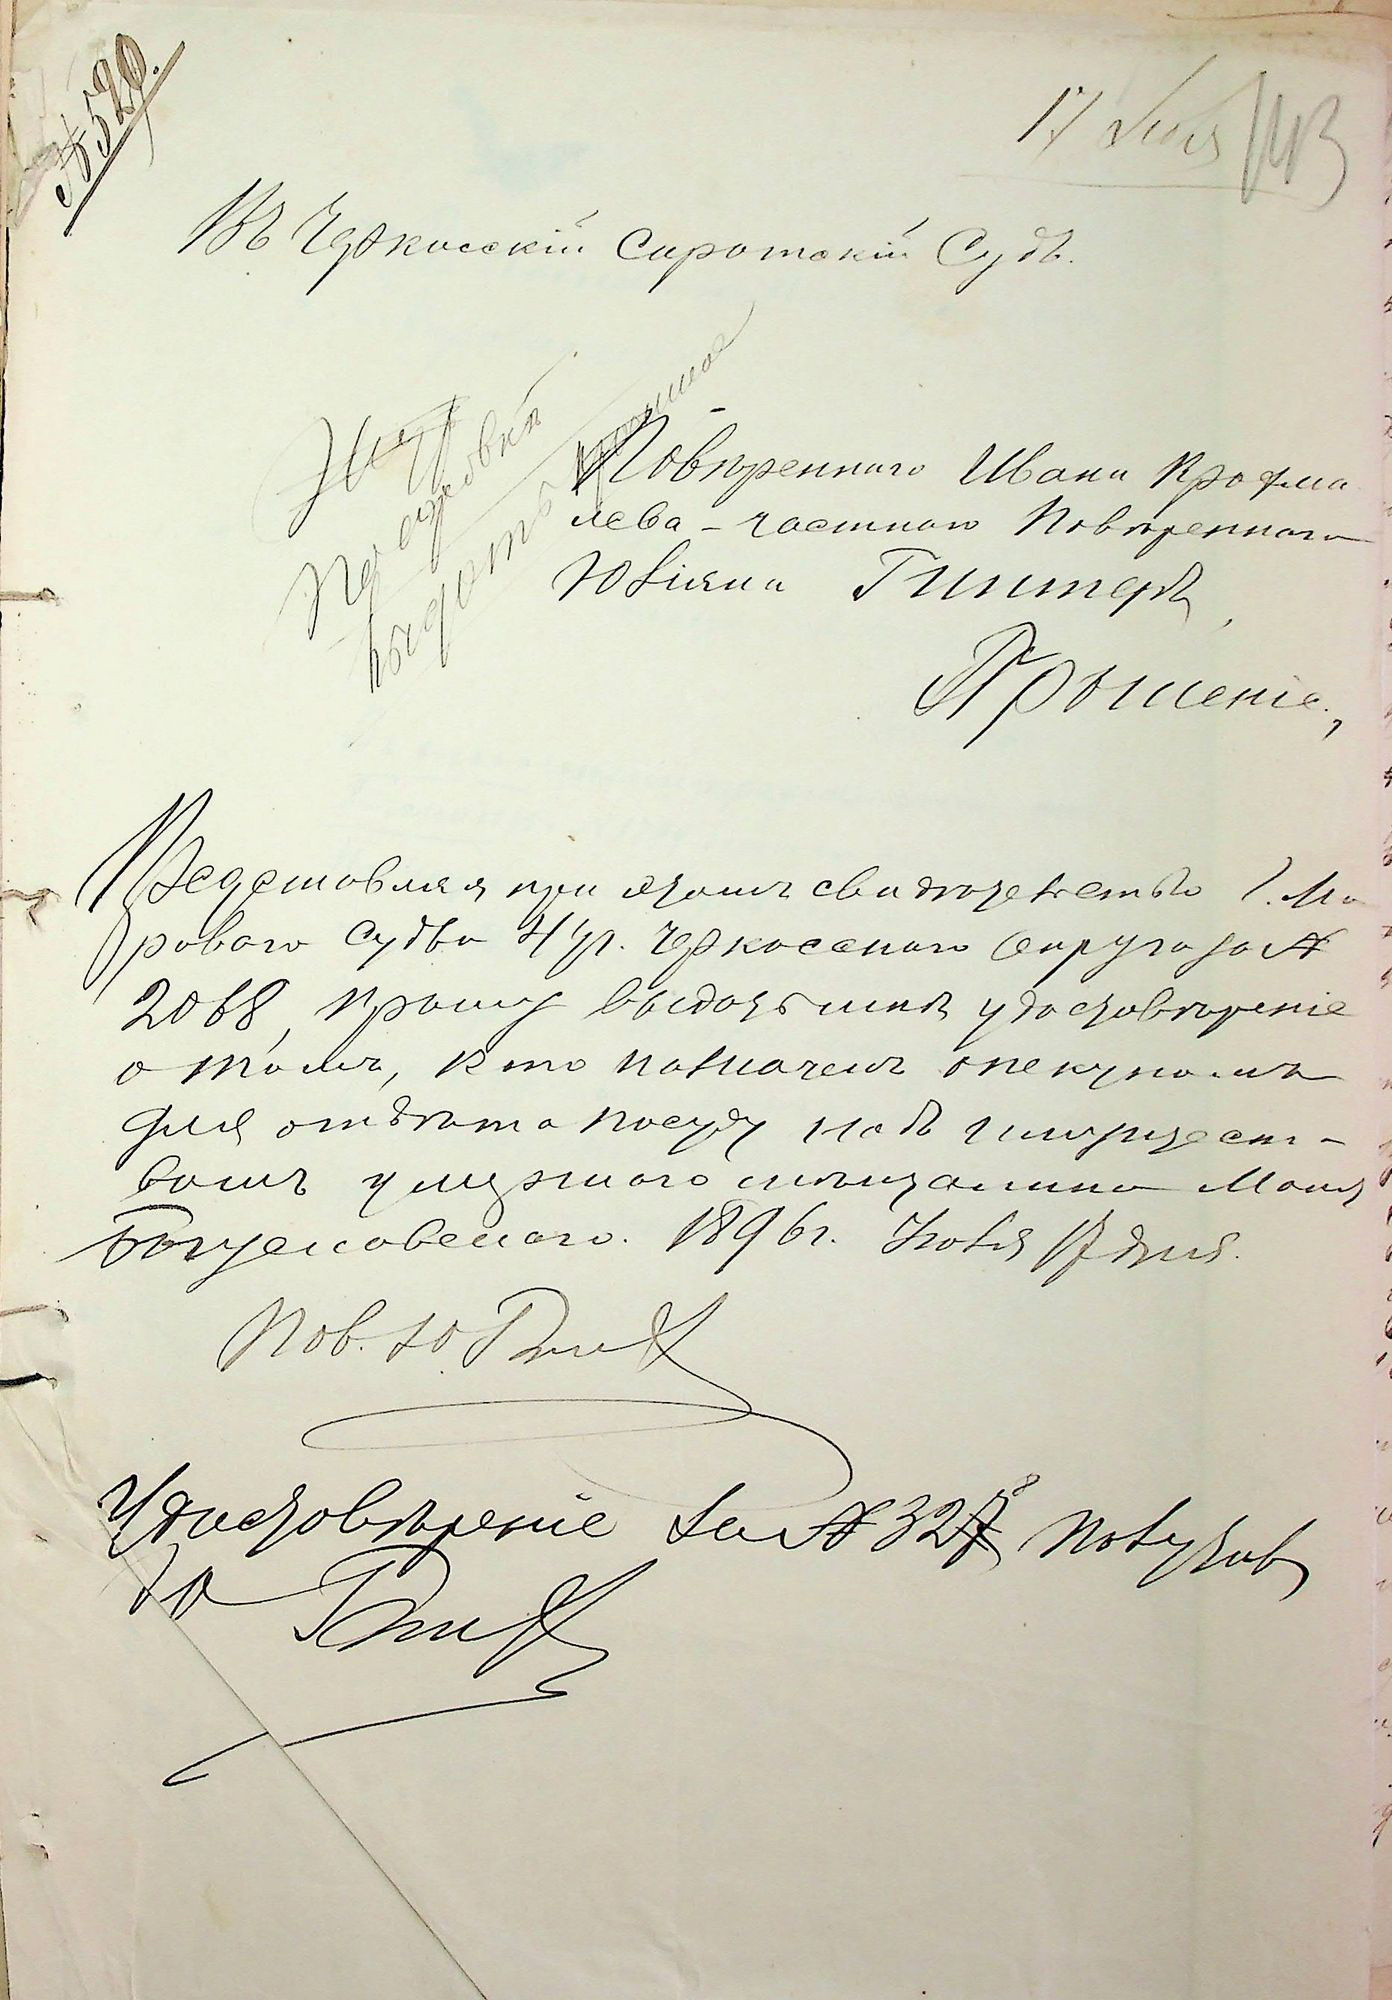 № 529.
17 Июля
143
Въ Черкасскій Сиротскій Судъ.
По справкѣ
выдать
Повѣреннаго Ивана Крафма
лева - частнаго Повѣреннаго
Юліяна Гинтеръ,
Прошеніе,
Представляя при этомъ свидѣтельство Г. Ми
рового Судьи 4 уч. Черкасскаго Округа за №
2068, прошу выдать мнѣ удостовѣреніе
о томъ, кто назначенъ опекуномъ
для отвѣта по суду надъ имущест-
вомъ умершаго мѣщанина
Богуславскаго. 1896 г. Іюля 17 дня.
Пов. Ю Гинт
Удостовѣреніе за № 328 получилъ
Ю Гинт